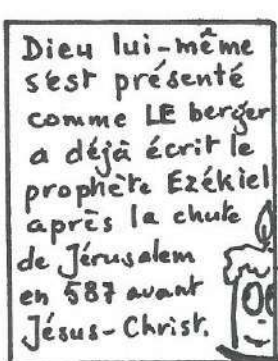 Dieu lui-même
s'est présenté
comme LE berger
a déjà écrit le
prophète Ezékiel
après la chute
de Jérusalem
en 587 avant
Jésus-Christ.